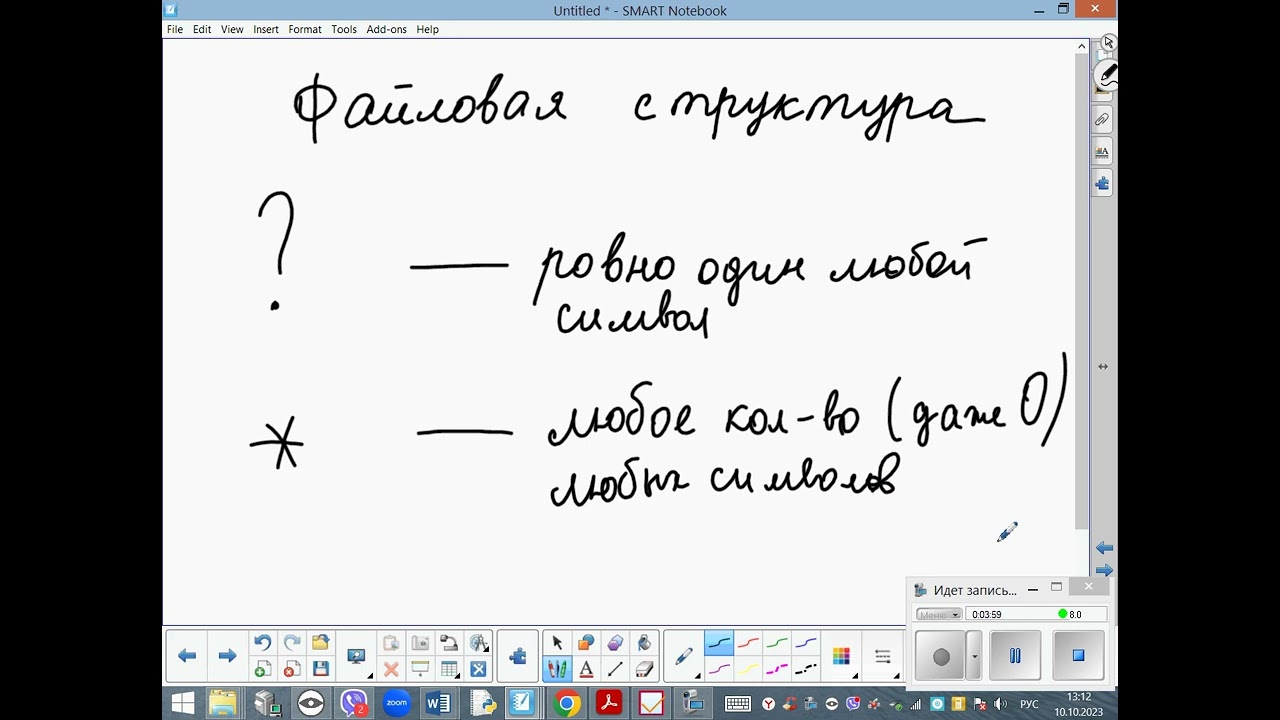 Untitled * - SMART Notebook
File Edit View Insert Format Tools Add-ons Help
Файловая структура
? — ровно один любой
символ
* — любое кол-во (даже 0)
любых символов
Идет запись...
Меню
0:03:59 8.0
zoom
2
РУС
13:12
10.10.2023